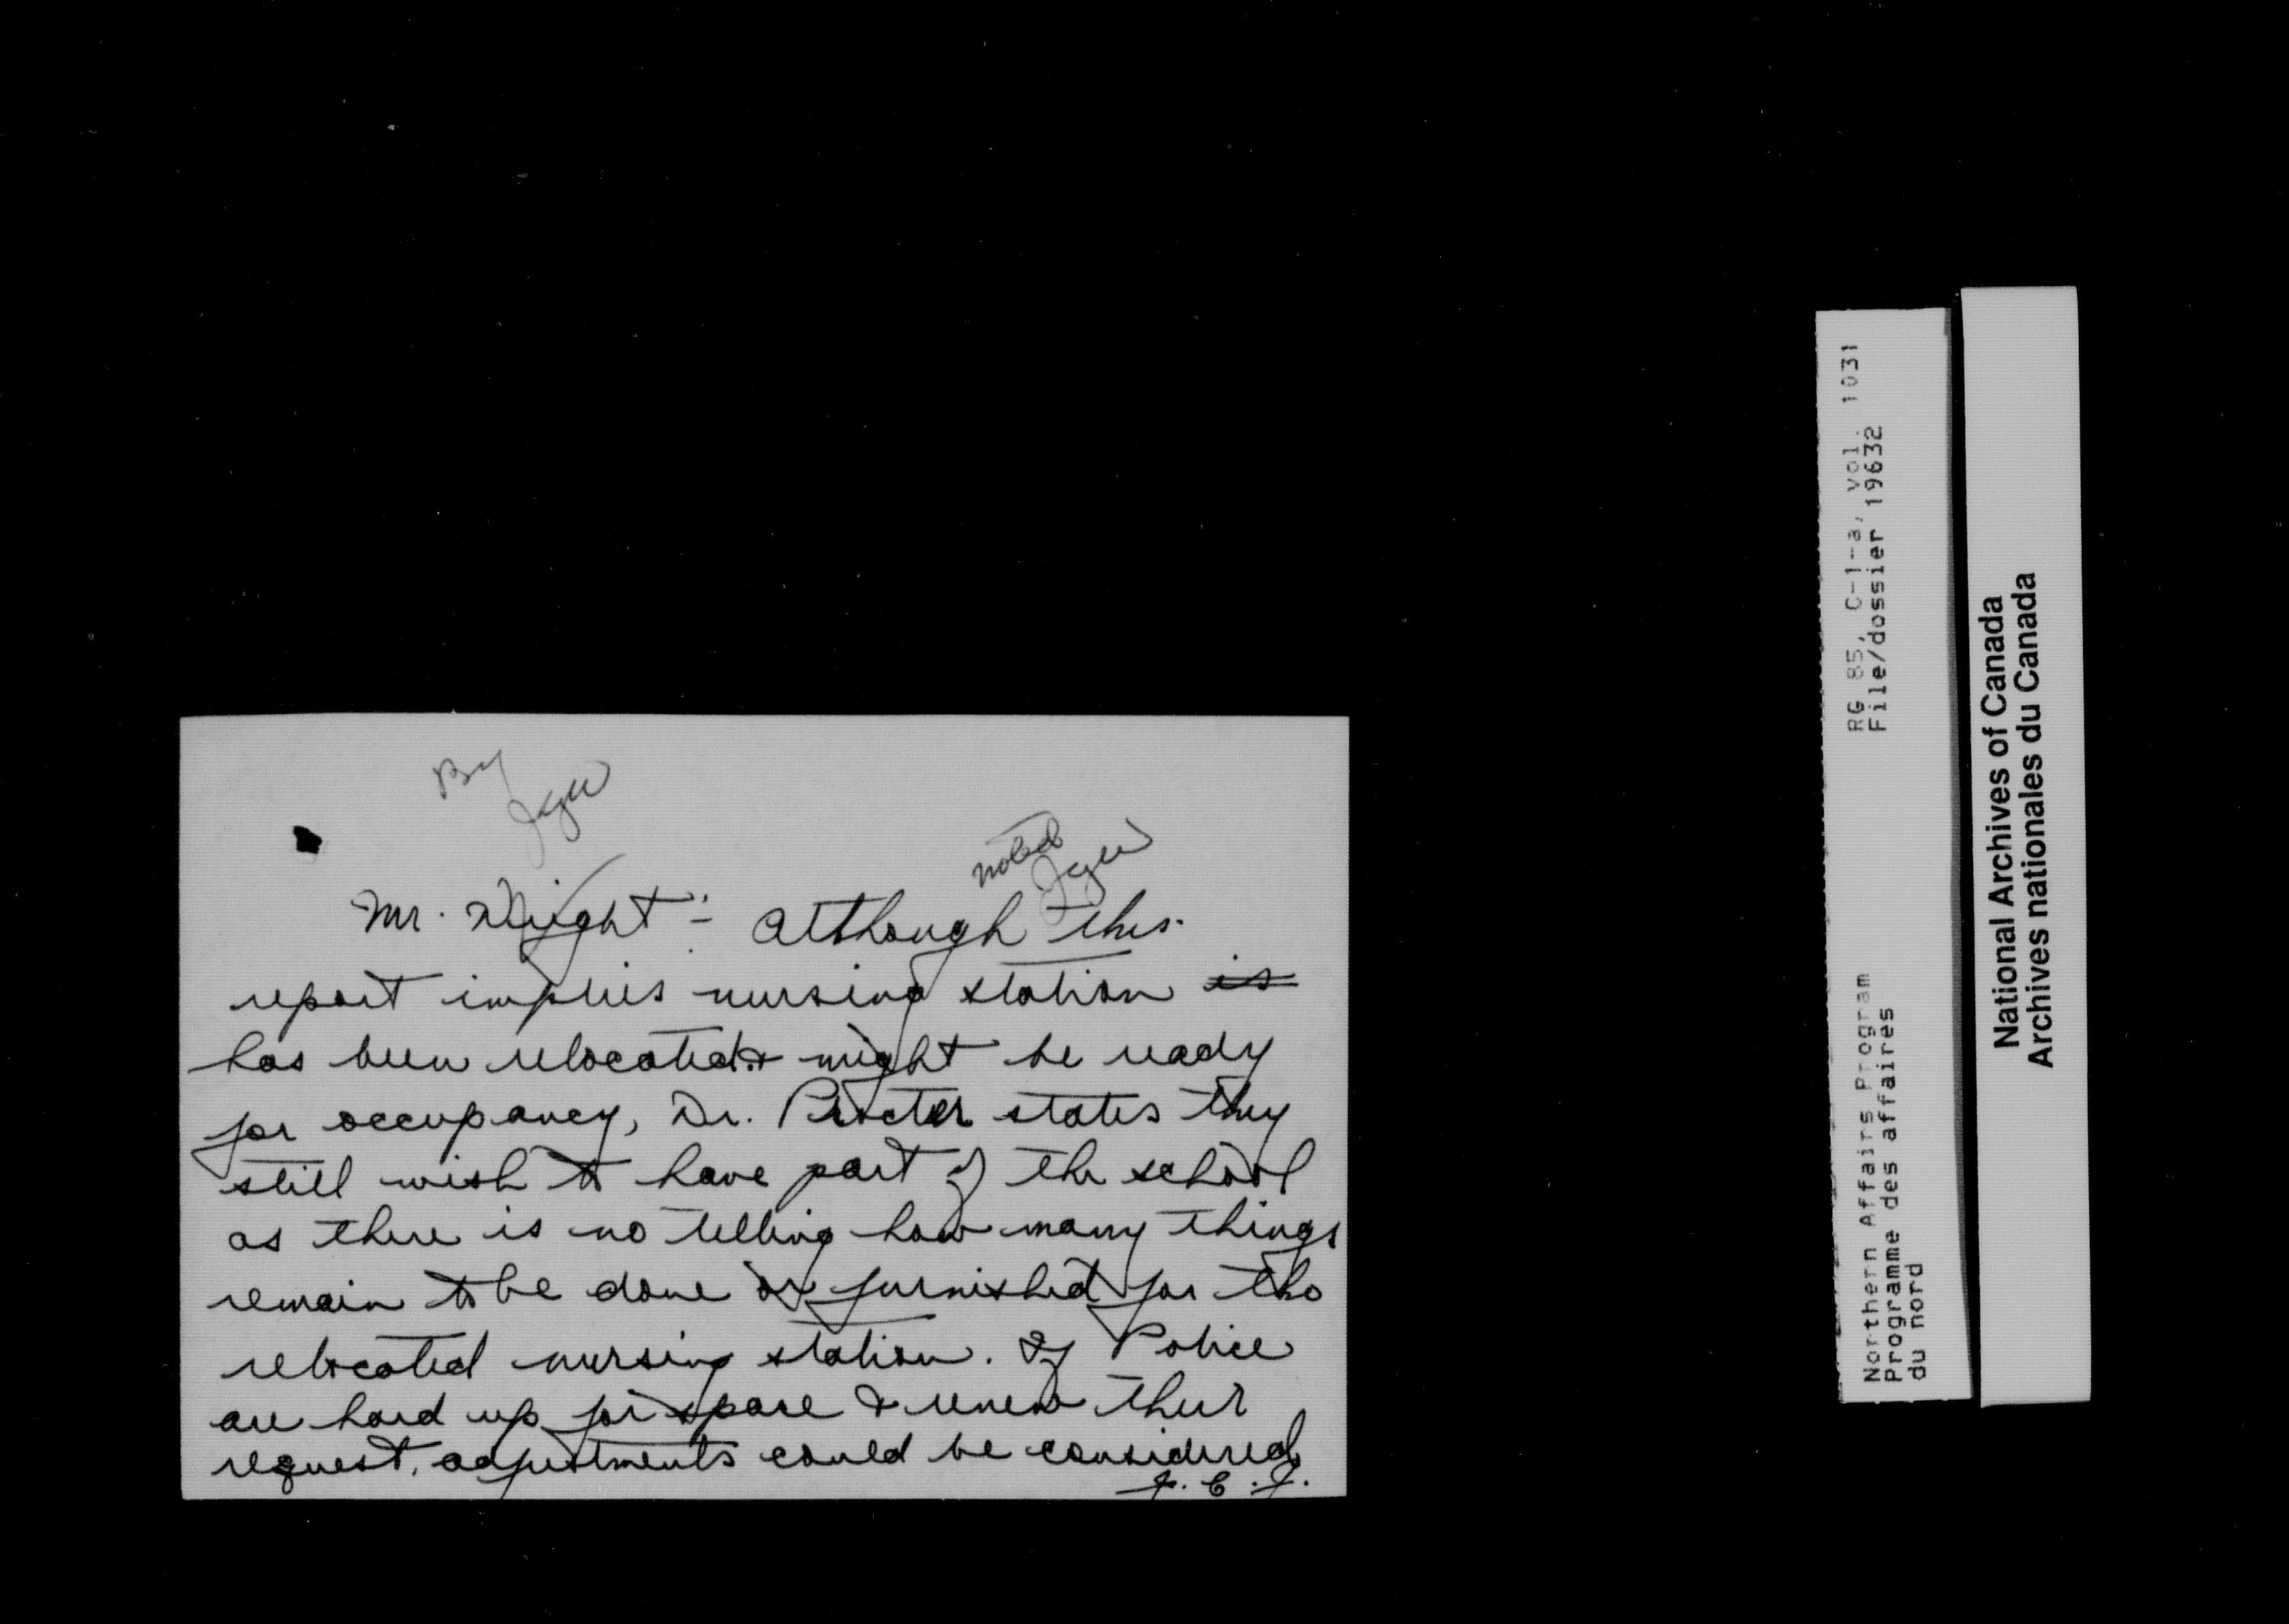 By
noted
Mr. Wright :- Although this
report implies nursing station is
has been relocated & might be ready
for occupancy, Dr. Procter states they
still wish to have part of the school
as there is no telling how many things
remain to be done or furnished for the
relocated nursing station. If Police
are hard up for space & renew their
request, adjustments could be considered
RG 85, C-1-a, vol. 1031
File/dossier 19632
Northern Affairs Program
Programme des affaires
du nord
National Archives of Canada
Archives nationales du Canada